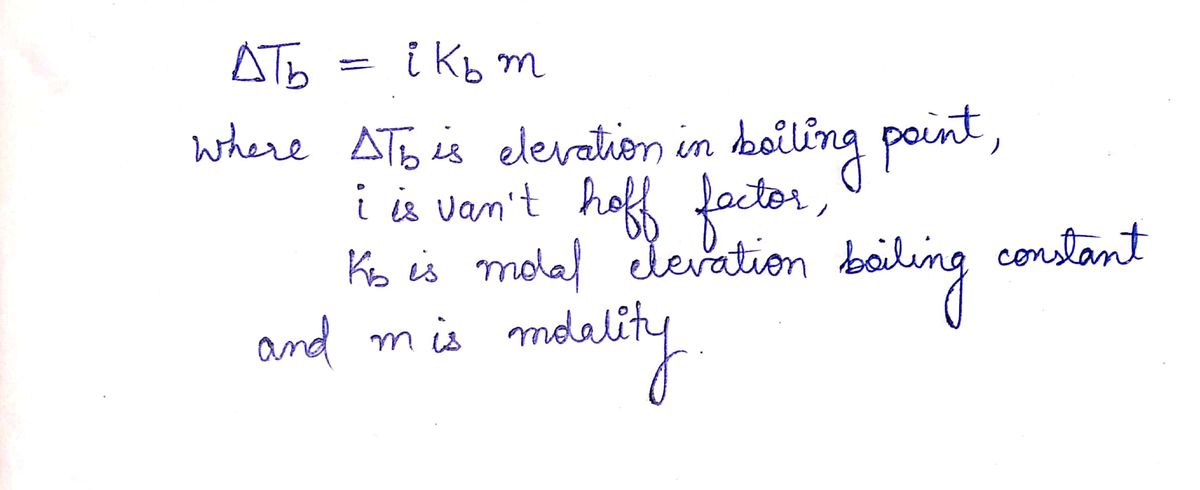 ΔTb = i Kb m
where ΔTb is elevation in boiling point,
i is van't hoff factor,
Kb is molal elevation boiling constant
and m is molality.